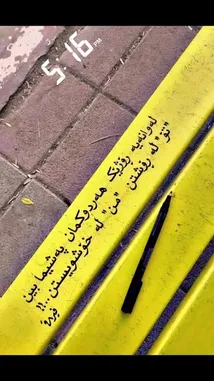 5:16 PM
لەوانەیە ڕۆژێک هەردوکمان پەشیما بین
"تۆ" لە ڕۆشتن "من" لە خۆشویستن..!!